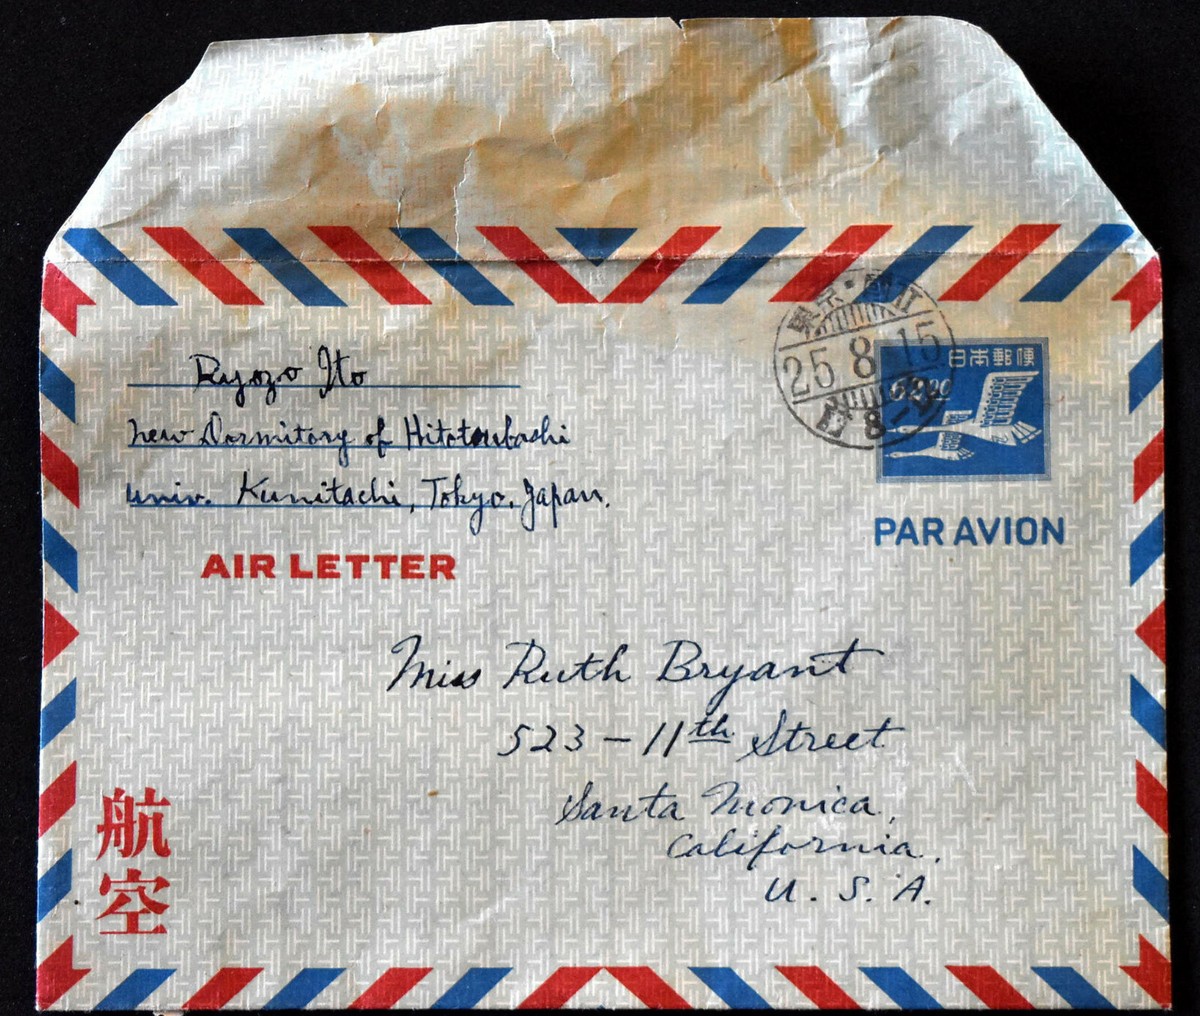 東京・
25 8 15
8-
日本郵便
62.00
Ryozo Ito
New Dormitory of Hitotsubashi
Univ. Kunitachi, Tokyo, Japan.
PAR AVION
AIR LETTER
Miss Ruth Bryant
523-11th Street
Santa Monica,
California.
U. S. A.
航
空